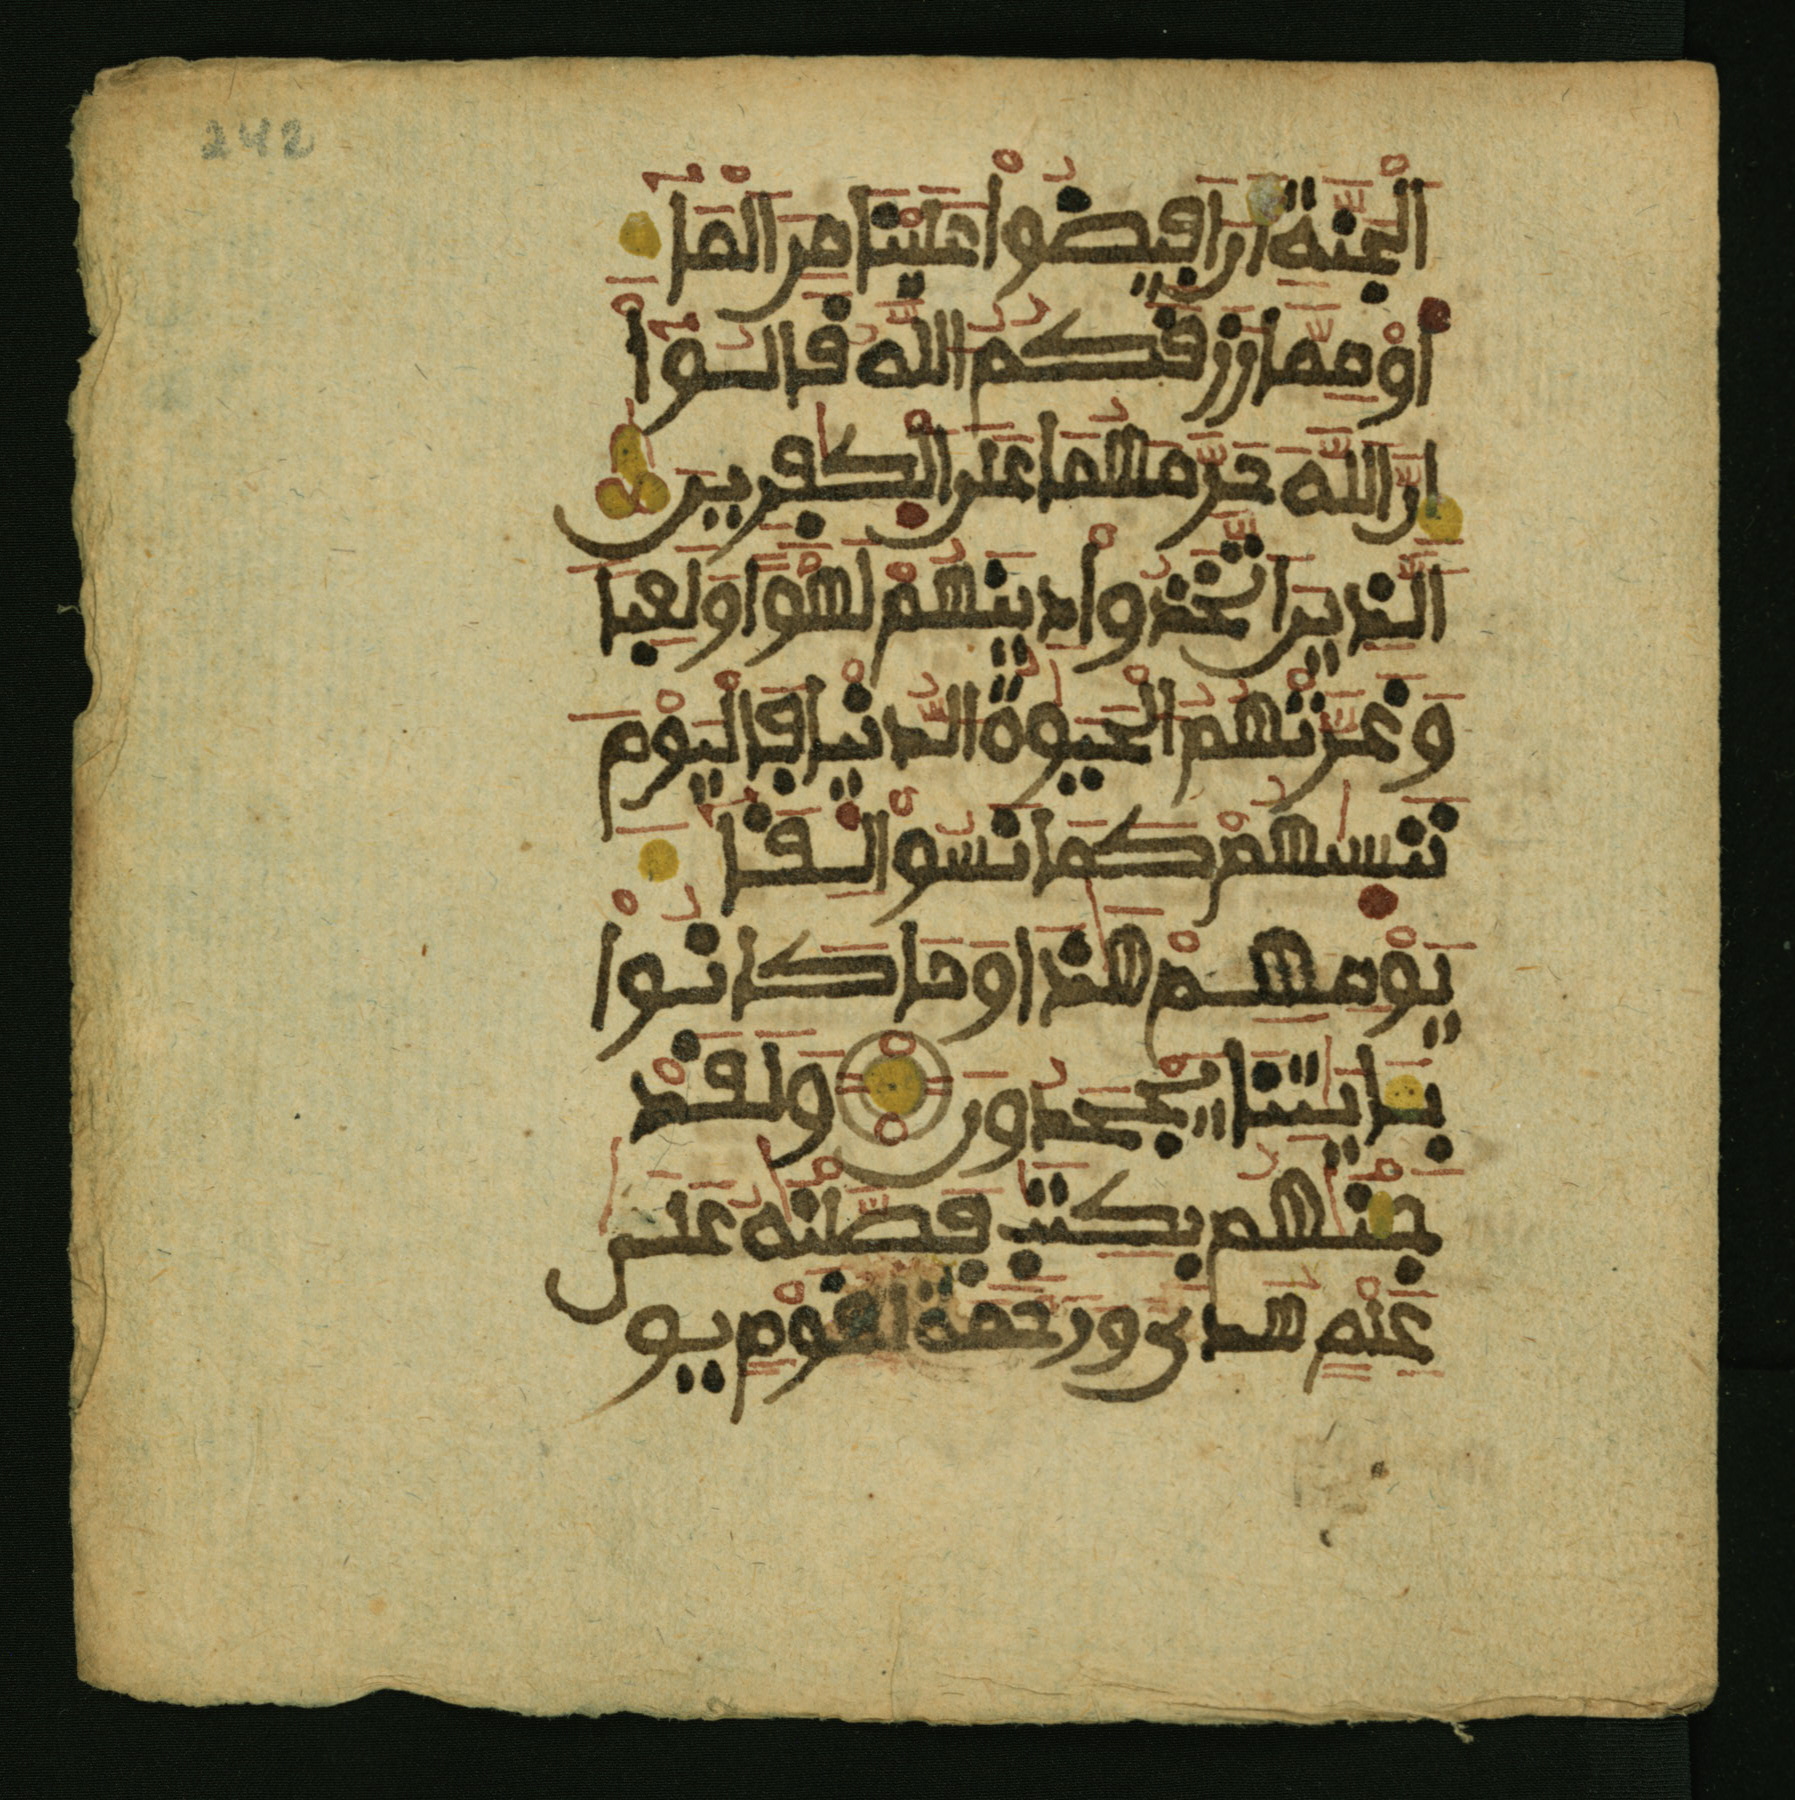 242
اَ۬لْجَنَّةِ أَنَ اَفِيضُواْ عَلَيْنَا مِنَ اَ۬لْمَآءِ
أَوْ مِمَّا رَزَقَكُمُ اُ۬للَّهُ قَالُوٓاْ
إِنَّ اَ۬للَّهَ حَرَّمَهُمَا عَلَى اَ۬لْكٰفِرِينَ
اَ۬لَّذِينَ اَ۪تَّخَذُواْ دِينَهُمْ لَهْواً وَلَعِباً
وَغَرَّتْهُمُ اُ۬لْحَيَوٰةُ اُ۬لدُّنْيَا فَالْيَوْمَ
نَنسٰيهُمْ كَمَا نَسُواْ لِقَآءَ
يَوْمِهِمْ هٰذَا وَمَا كَانُواْ
بِـَٔايٰتِنَا يَجْحَدُونَ وَلَقَدْ
جِئْنٰهُم بِكِتٰبٍ فَصَّلْنٰهُ عَلَىٰ
عِلْمٍ هُدىً وَرَحْمَةً لِّقَوْمٍ يُو